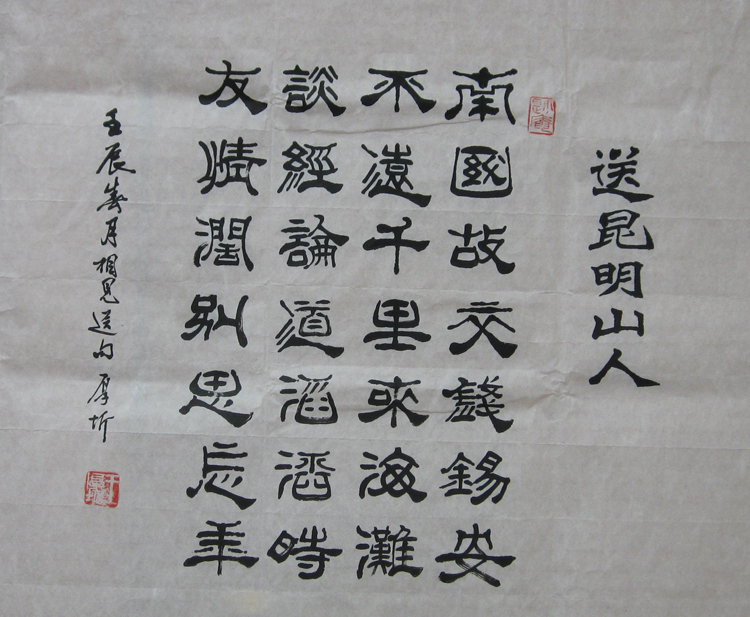 送昆明山人
南國故交錢錫安
不遠千里來海灘
談經論道滔滔時
友情濶別思忘年
壬辰春月相見送句 厚圻